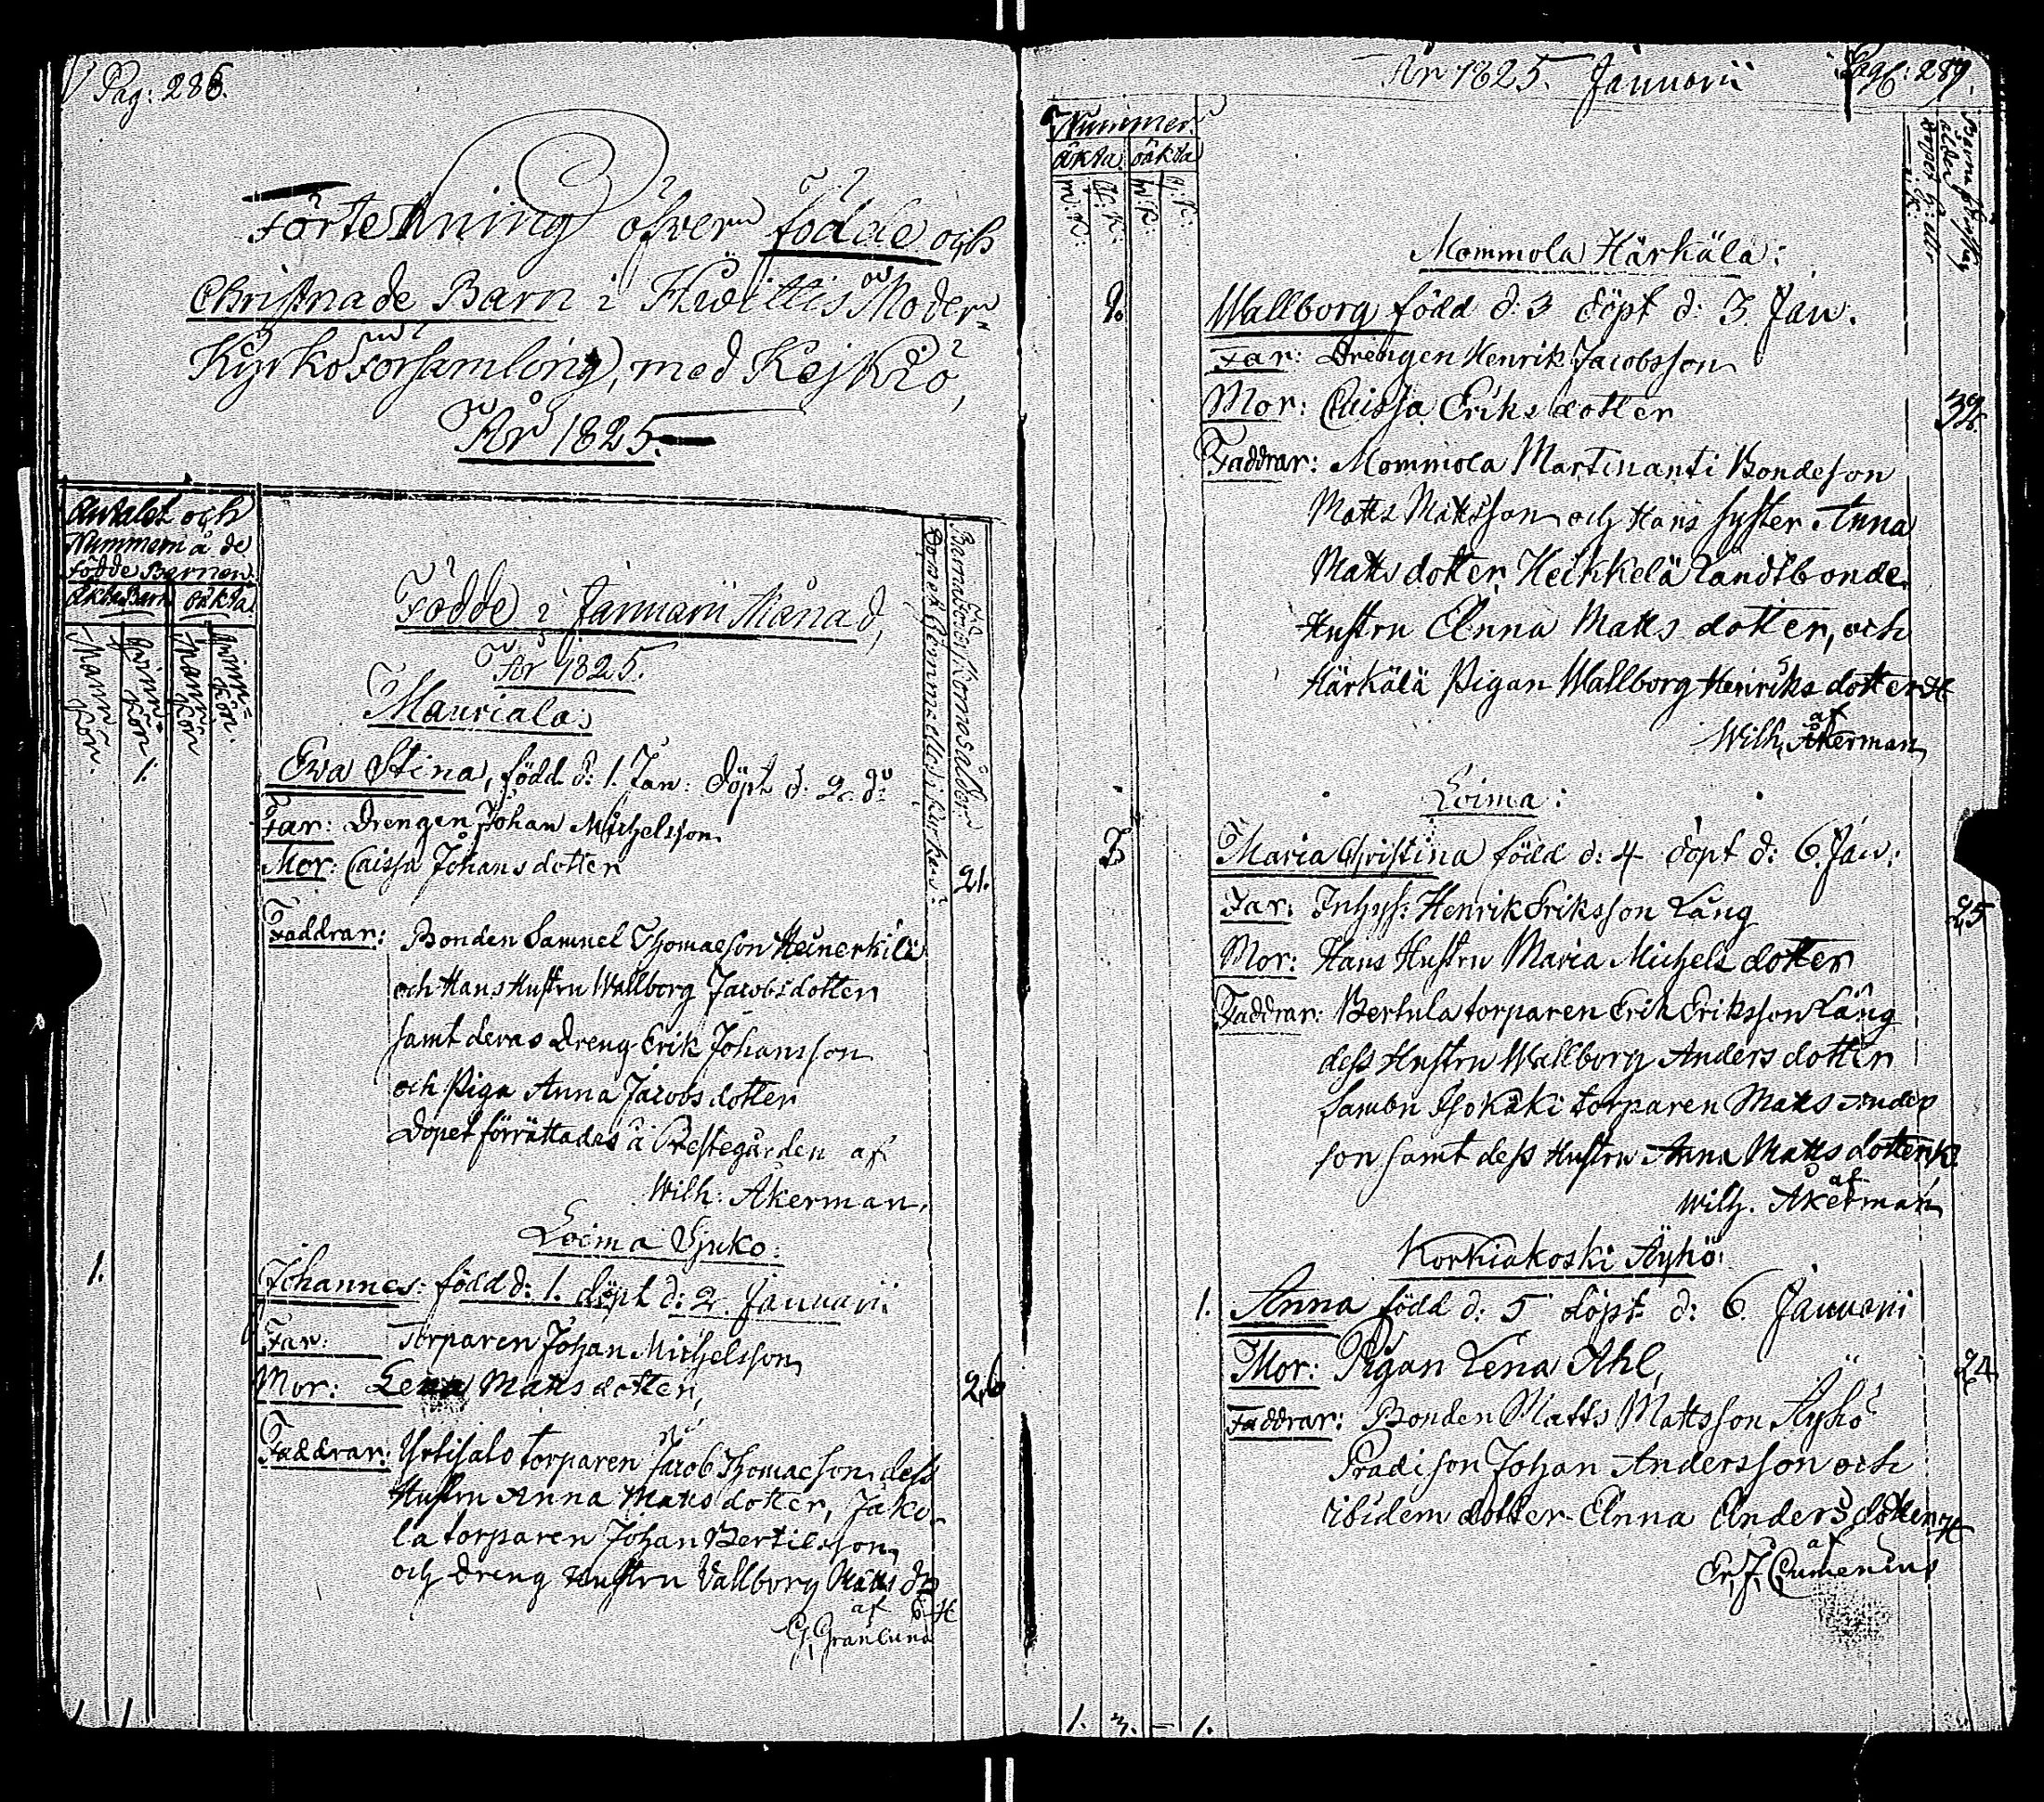 Pag: 286.
Förtekning öfver födde och
Christnade Barn i Hwittis Moder-
Kyrko Församling, med Kejkiö,
År 1825.
Antalet och
Nummern å de
födde Barnen
Äkta Barn oäkta
Mannkön. Qvinnkön Mannkön Qvinnkön.
Barnaföderskornas ålder.
Födde i Januarii Månad,
År 1825.
Mauriala:
1.
Eva Stina, född d: 1. Jan: döpt d. 2. do
Far: Drengen Johan Michelsson
Mor: Caissa Johansdotter
21.
Faddrar: Bonden Samuel Thomasson
och Hans Hustru Wallborg Jacobsdotter
samt deras Dreng Erik Johansson
och Piga Anna Jacobsdotter
Dopet förrättades å Prestegården af
Wilh: Åkerman.
Loima Sjuko:
1.
Johannes: född d: 1. döpt d: 2. Januarii
Far: Torparen Johan Michelsson
Mor: Lena Mattsdotter,
26
Faddrar: Yrtisalo torparen Jacob Thomasson, dess
Hustru Anna Mattsdotter, Jako-
la torparen Johan Bertilsson,
och Dreng Hustru Vallborg Matts dr
af
G. Granlund
1. 1.
År 1825. Januarii
Pag: 287.
Nummer.
äkta oäkta
m: k: q: k: m: k: q: k:
Mommola Härkälä:
Wallborg född d: 3 döpt d: 3. Jan.
Far: Drengen Henrik Jacobsson
Mor: Caissa Eriksdotter
32.
Faddrar: Mommola Martinanti Bondeson
Matts Mattsson och Hans syster Anna
Mattsdotter, Heikkelä Landtbonde
Hustru Anna Matts dotter, och
Härkälä Pigan Wallborg Henriks dotter
af
Wilh. Åkerman
Loima:
Maria Christina född d: 4 döpt d: 6. Jan:
Far: Inhys: Henrik Eriksson Lång
25
Mor: Hans Hustru Maria Michels dotter
Faddrar: Bertula torparen Erik Eriksson Lång
dess Hustru Wallborg Anders dotter
Sambu Isokäki torparen Matts Anders
son samt dess Hustru Anna Matts dotter
af
Wilh. Åkerman
Korkiakoski Äyhö:
1. Anna född d: 5 döpt d: 6. Januarii
Mor: Pigan Lena Ahl,
24
Faddrar: Bonden Matts Mattsson Äyhö
Prädison Johan Andersson och
ibidem dotter Anna Andersdotter
af
Er. J. Cumenius
1. 3. - 1.